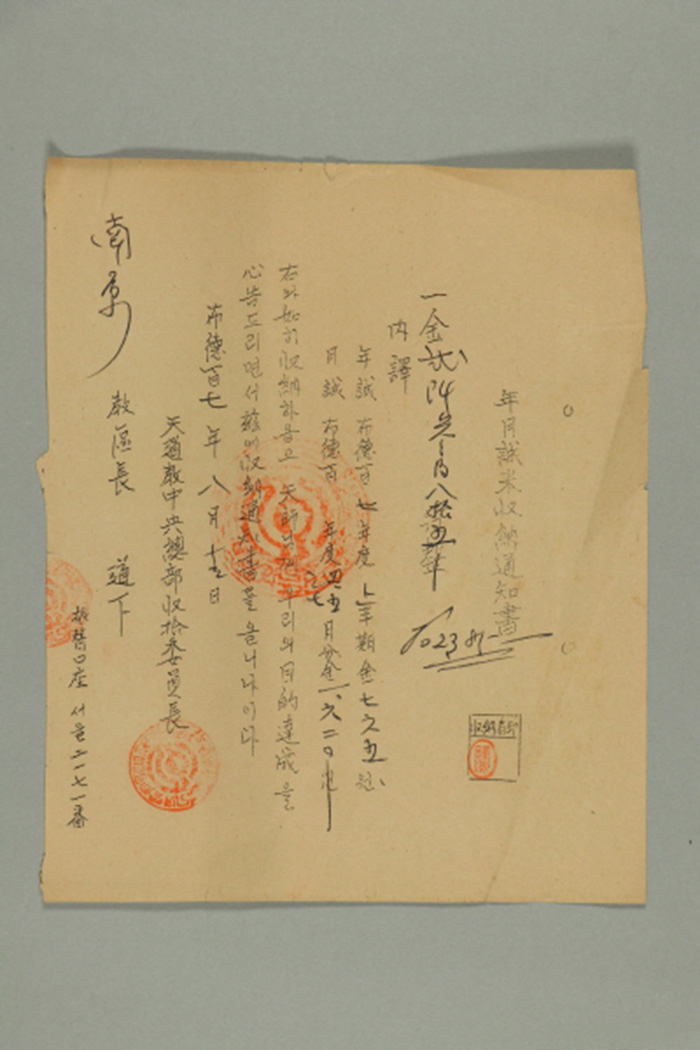 年月誠米収納通知書
収納者印
一金貳阡參百八拾五
内譯
年誠 布德百七年度 上半期金 七六五원
月誠 布德百 年度 四五六七 月分金 一、六二〇
右와 如히 収納하옵고 우리의 目的達成을
心告드리면서 玆에 収納通知書를 올니나이다
布德百七年 八月 十五日
天道敎中央總部収拾委員長
敎區長 道下
振替口座 서울 二一七一番